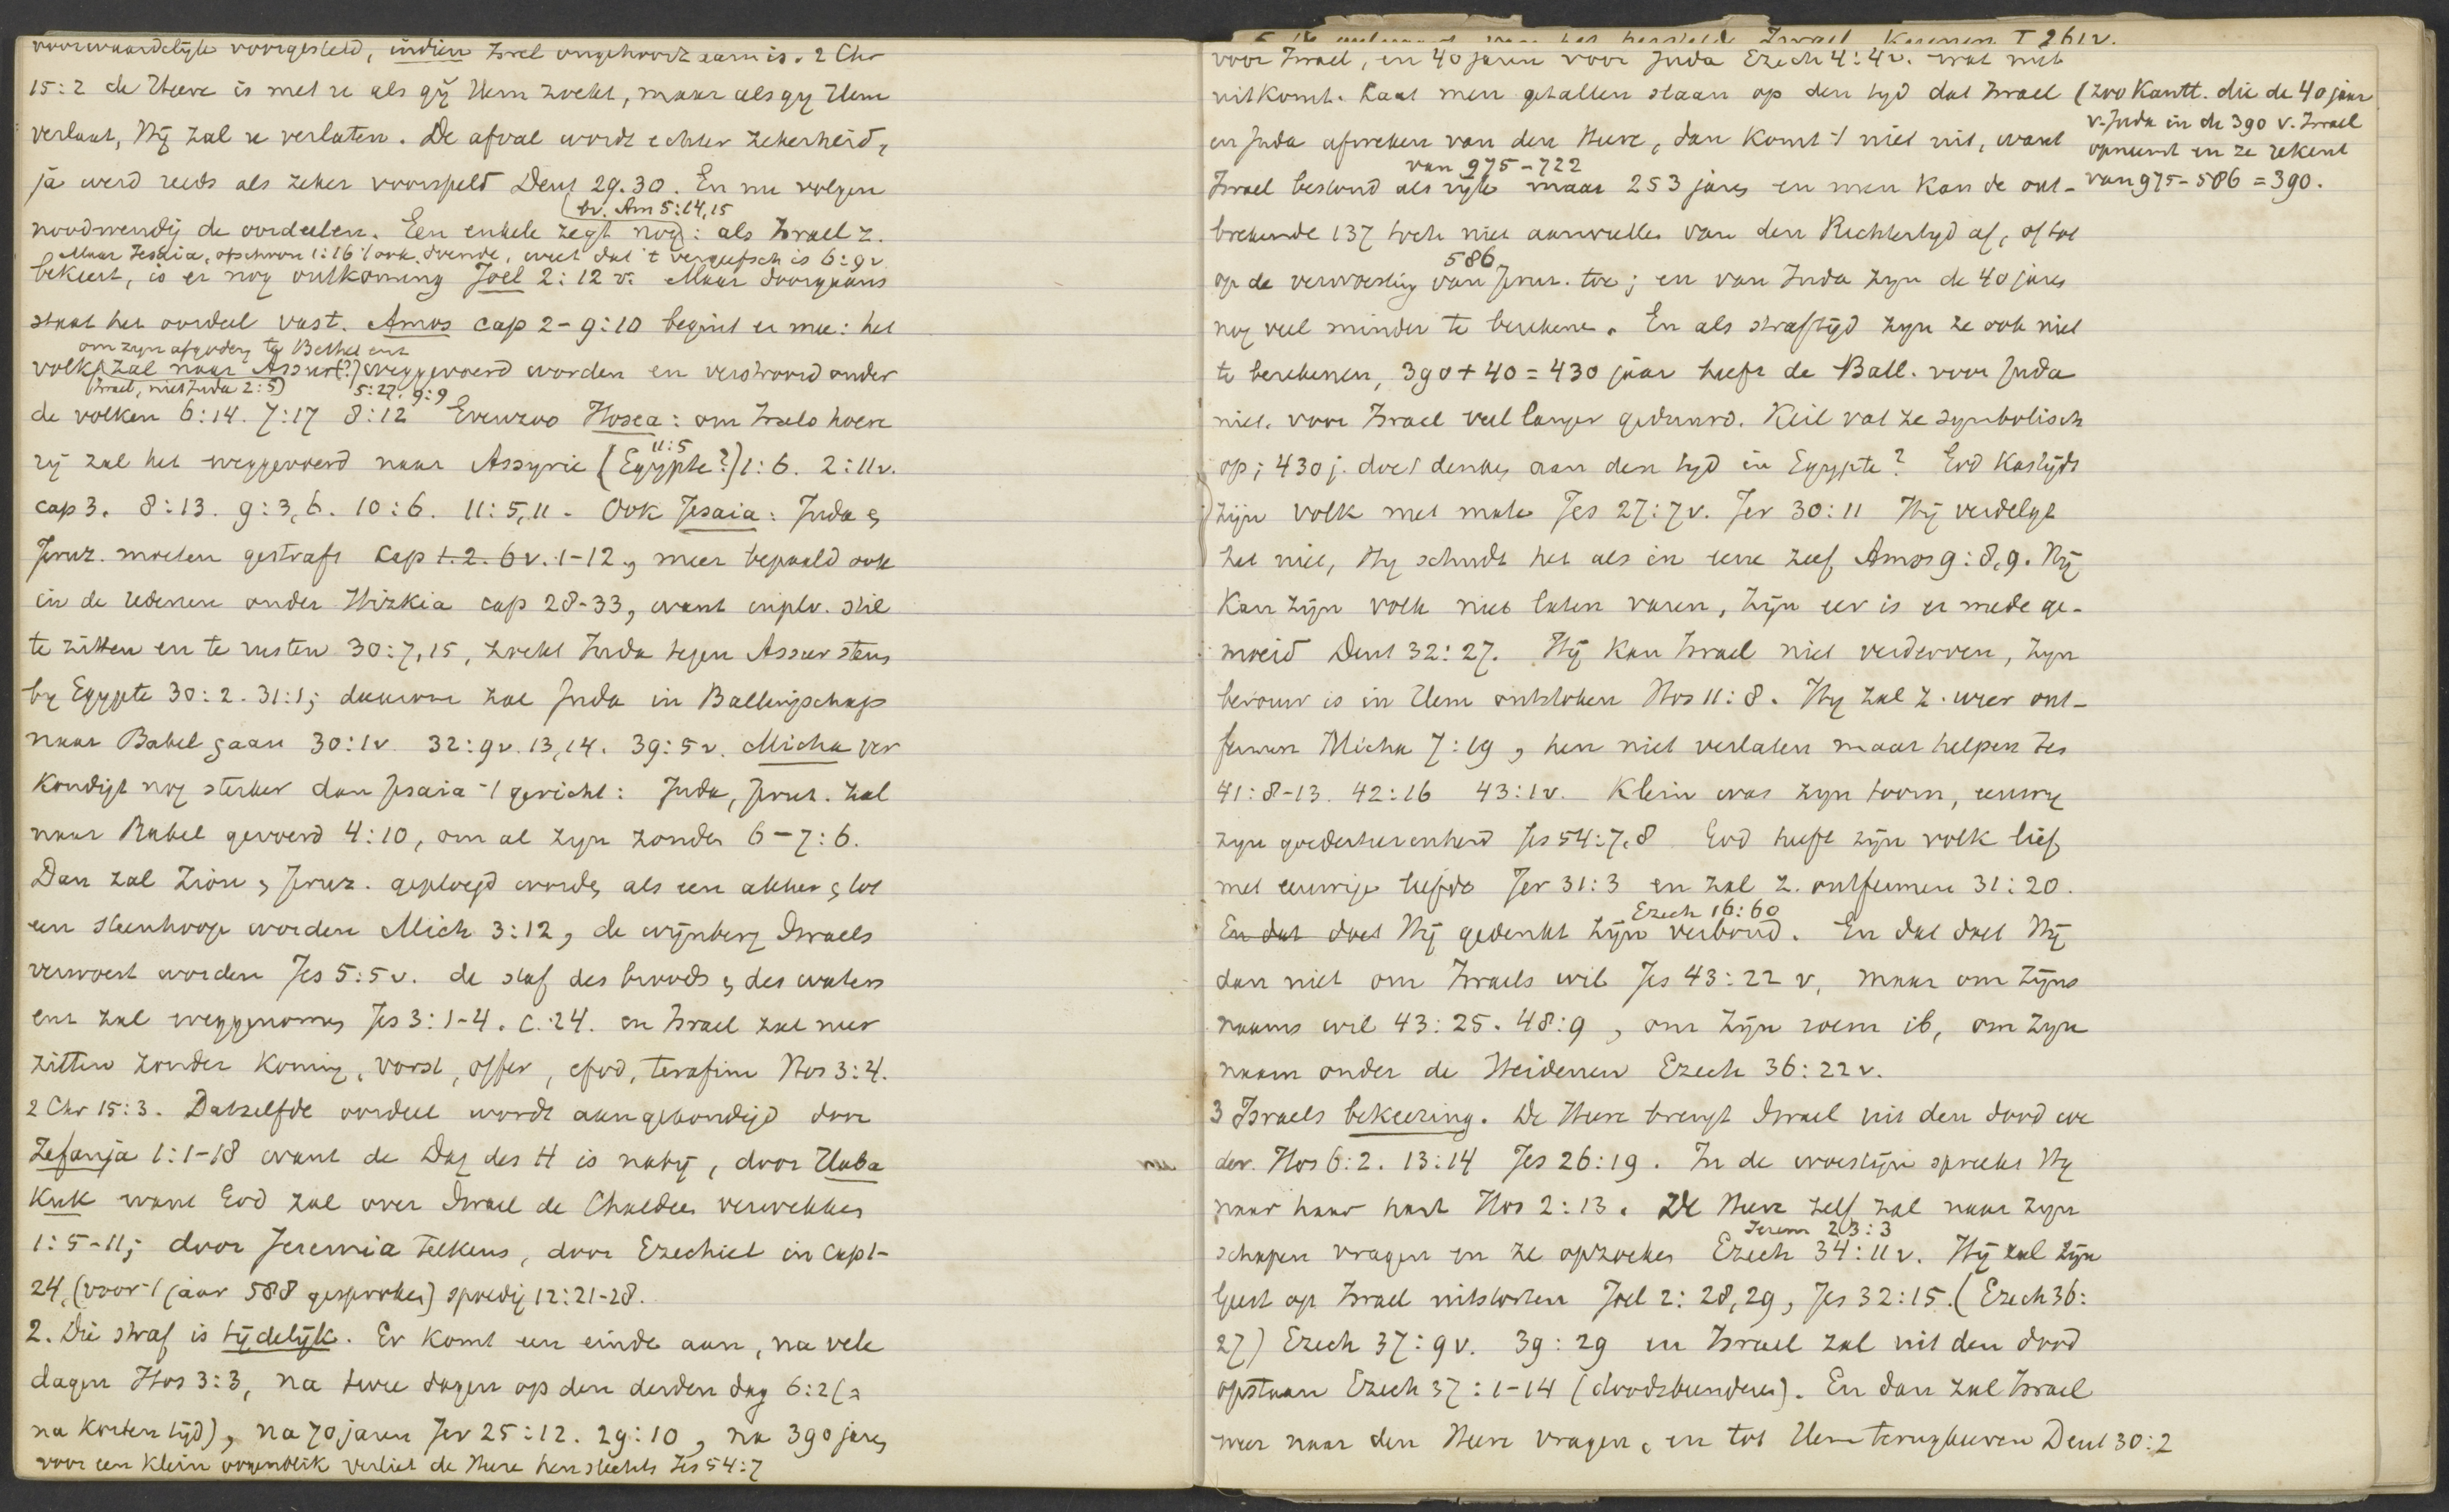 voorwaardelijk voorgesteld, indien Israel ongehoorzaam is. 2 Chr
15:2 de Heere is met u als gij Hem zoekt, maar als gij Hem
verlaat, Hij zal u verlaten. De afval wordt echter zekerheid,
ja werd reeds als zeker voorspeld Deut 29.30. En nu volgen
bv. Am 5:14,15
noodwendig de oordeelen. Een enkele zegt nog: als Israel z.
Maar Jesaia, ofschoon 1:16 't ook doende, weet dat 't vergeefsch is 6:9v
bekeert, is er nog ontkoming Joel 2:12 v. Maar doorgaans
staat het oordeel vast. Amos cap 2-9:10 begint er mee: het
om zijn afgodery te Bethel ent
volk zal naar Assur(?) weggevoerd worden en verstrooid onder
(Israel, niet Juda 2:5) 5:27. 9:9
de volken 6:14. 7:17 8:12 Evenzoo Hosea: om Israels hoere
11:5
rij zal het weggevoerd naar Assyrie (Egypte?) 1:6. 2:11v.
cap 3. 8:13. 9:3,6. 10:6. 11:5,11. Ook Jesaia: Juda &
Jeruz. moeten gestraft cap 1.2.6v. 1-12, meer bepaald ook
in de redenen onder Hizkia cap 28-33, want inplv. stil
te zitten en te rusten 30:7,15, zoekt Juda tegen Assur steun
by Egypte 30:2. 31:1; daarom zal Juda in Ballingschap
naar Babel gaan 30:1v 32:9v.13,14. 39:5v. Micha ver
kondigt nog sterker dan Jesaia 't gericht: Juda, Jeruz. zal
naar Babel gevoerd 4:10, om al zijn zonden 6-7:6.
Dan zal Zion & Jeruz. geploegd worden als een akker & tot
een steenhoop worden Mich 3:12, de wijnberg Israels
verwoest worden Jes 5:5v. de staf des broods & des waters
ent zal weggenomen Jes 3:1-4. c.24. en Israel zal neer
zitten zonder Koning, vorst, offer, efod, terafim Hos 3:4.
2 Chr 15:3. Datzelfde oordeel wordt aangekondigd door
Zefanja 1:1-18 want de Dag des H is nabij, door Haba
kuk want God zal over Israel de Chaldeen verwekken
1:5-11; door Jeremia telkens, door Ezechiel in cap 1-
24, (voor 't jaar 588 gesproken) spoedig 12:21-28.
2. Die straf is tijdelijk. Er komt een einde aan, na vele
dagen Hos 3:3, na twee dagen op den derden dag 6:2 (=
na korten tijd), na 70 jaren Jer 25:12. 29:10, na 390 jaren
voor een klein oogenblik verliet de Heere hen slechts Jes 54:7
van het herstelde Israel Kuenen I 261v.
voor Israel, en 40 jaren voor Juda Ezech 4:4v. wat niet
uitkomt. Laat men getallen staan op den tyd dat Israel
(zoo Kantt. die de 40 jaar
v. Juda in de 390 v. Israel
opneemt en ze rekent
van 975-586=390.
en Juda afweken van den Heere, dan komt 't niet uit, want
van 975-722
Israel bestond als ryk maar 253 jaren en men kan de ont-
brekende 137 toch niet aanvullen van den Richtertyd af, of tot
586
op de verwoesting van Jeruz. toe; en van Juda zyn de 40 jaren
nog veel minder te berekene. En als straftijd zyn ze ook niet
te berekenen, 390+40=430 jaar heeft de Ball. voor Juda
niet, voor Israel veel langer geduurd. Keil vat ze symbolisch
op; 430 j. doet denken aan den tyd in Egypte? God kastijdt
zijn volk met mate Jes 27:7v. Jer 30:11 Hij verdelgt
het niet, Hy schudt het als in eene zeef Amos 9:8,9. Hij
kan zijn volk niet laten varen, zijn eer is er mede ge-
moeid Deut 32:27. Hij kan Israel niet verderven, zyn
berouw is in Hem ontstoken Hos 11:8. Hy zal z. weer ont-
fermen Micha 7:19, hen niet verlaten maar helpen Jes
41:8-13. 42:16 43:1v. Klein was zyn toorn, eeuwig
zyn goedertierenheid Jes 54:7,8 God heeft zijn volk lief
met eeuwige liefde Jer 31:3 en zal z. ontfermen 31:20.
Ezech 16:60
En dat doet Hij gedenkt zijn verbond. En dat doet Hij
dan niet om Israels wil Jes 43:22 v, maar om zijns
naams wil 43:25. 48:9, om zijn roem ib, om zyn
naam onder de Heidenen Ezech 36:22v.
3 Israels bekeering. De Heere brengt Israel uit den dood we
der. Hos 6:2. 13:14 Jes 26:19. In de woestijn spreekt Hy
nu
naar haar hart Hos 2:13. De Heere zelf zal naar zyn
Jerem 23:3
schapen vragen en ze opzoeken Ezech 34:11v. Hij zal zijn
Geest op Israel uitstorten Joel 2:28,29, Jes 32:15. (Ezech 36:
27) Ezech 37:9v. 39:29 en Israel zal uit den dood
opstaan Ezech 37:1-14 (doodsbeenderen). En dan zal Israel
weer naar den Heere vragen, en tot Hem terugkeeren Deut 30:2